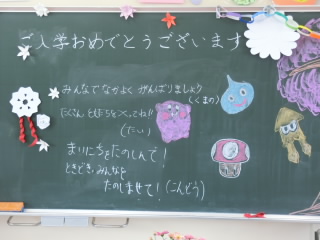 ご入学おめでとうございます
みんなでなかよく がんばりましょう
(くまの)
たくさん 友だちをつくってね!!
(たい)
まいにちをたのしんで!
ときどき、みんなを
たのしませて!(こんどう)